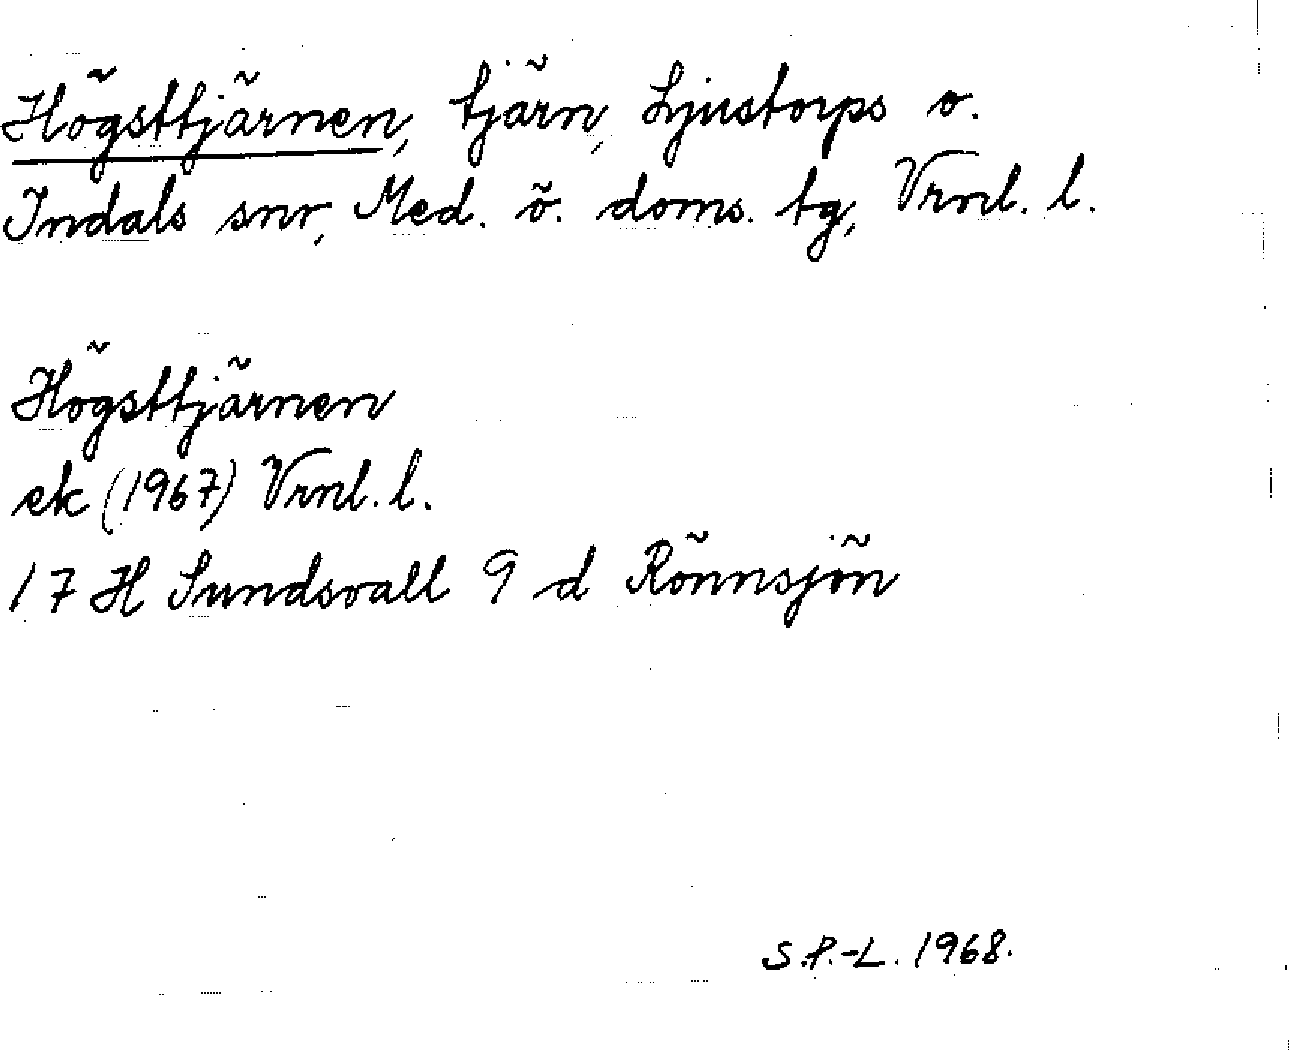 Högsttjärnen, tjärn, Ljustorps o.
Indals snr, Med. ö. doms. tg, Vrnl. l.
Högsttjärnen
ek (1967) Vrnl. l.
17 H Sundsvall 9 d Rönnsjön
S.P.-L. 1968.